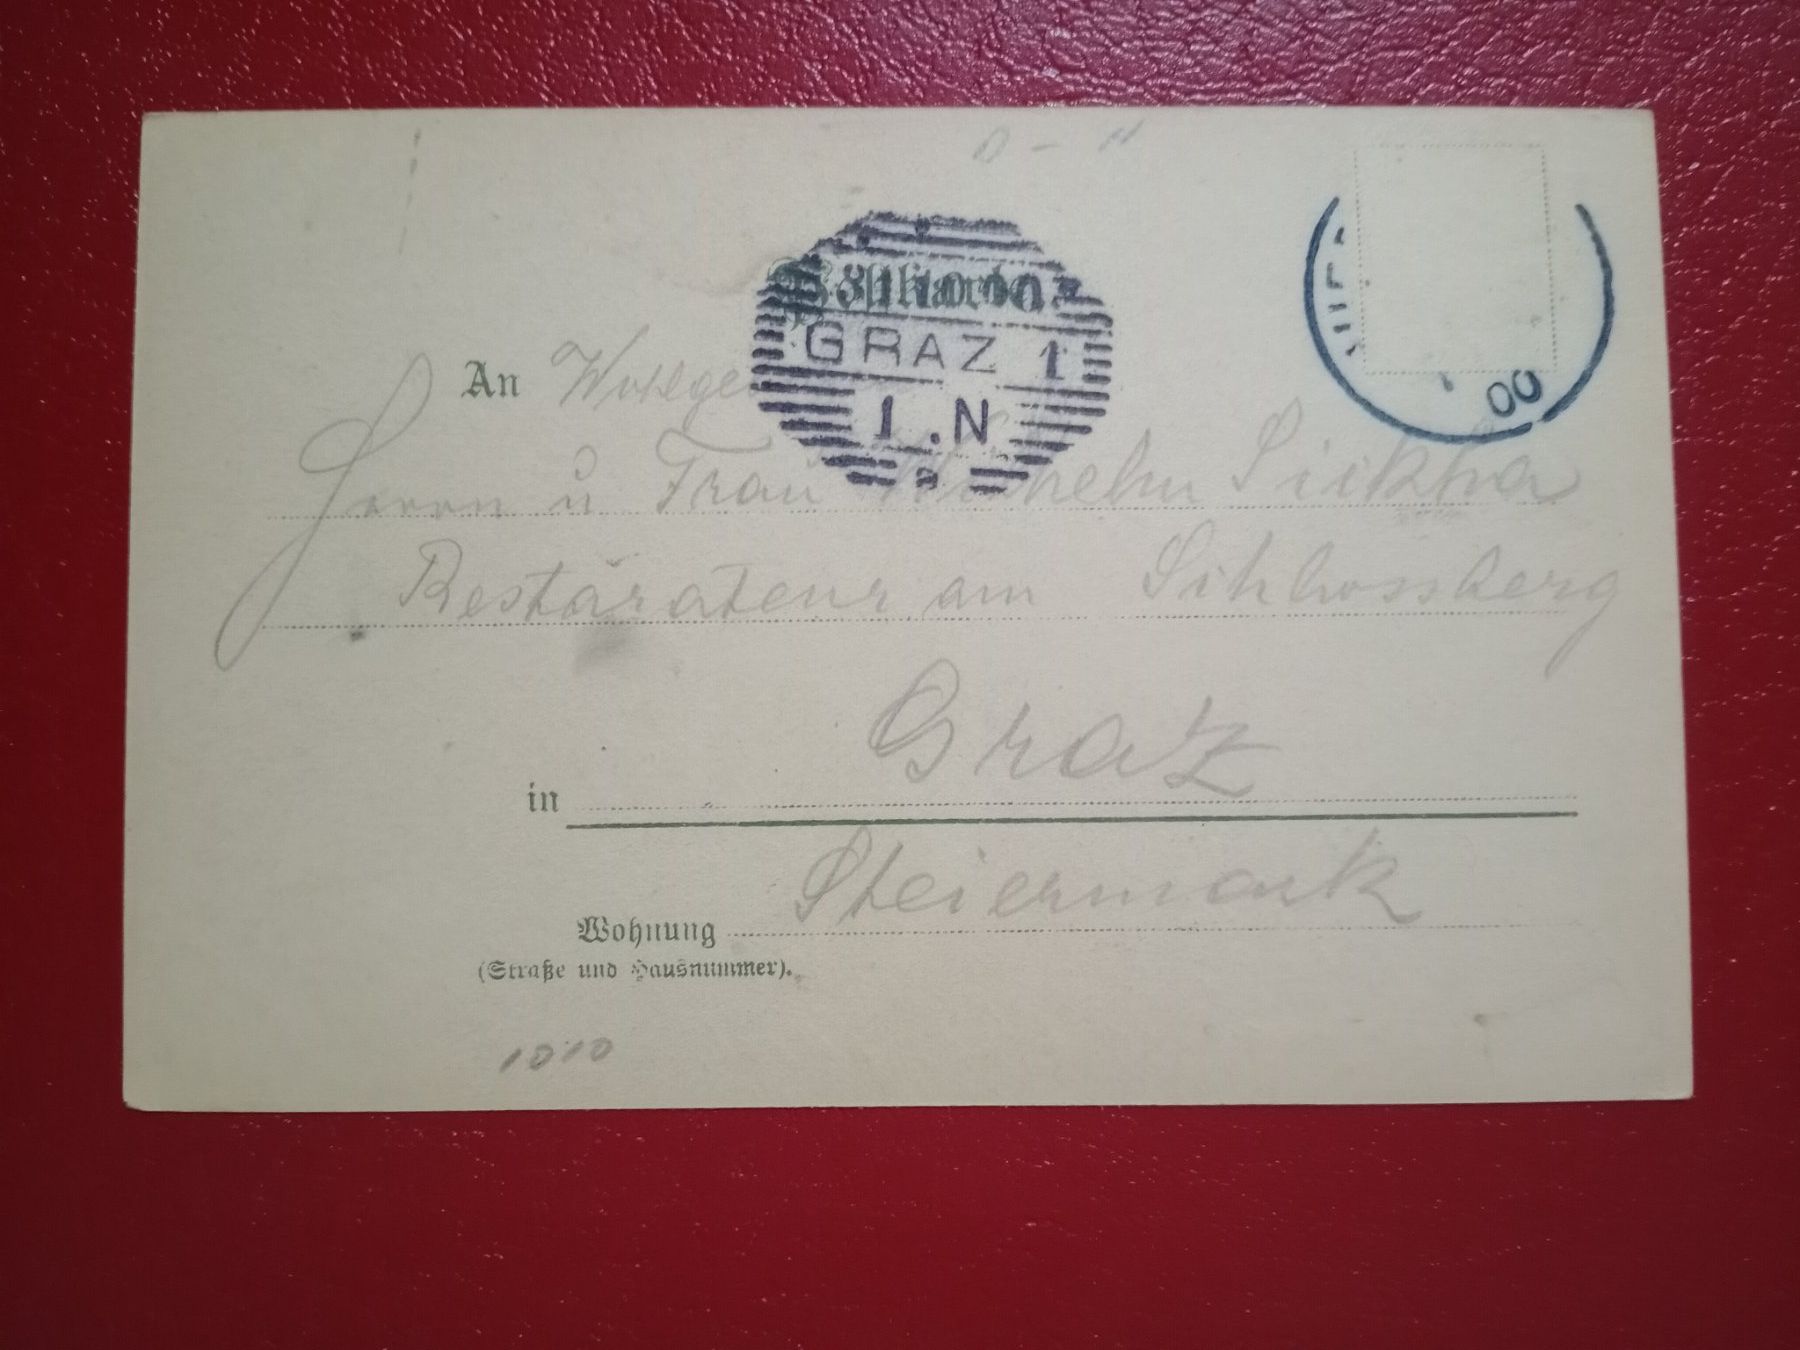 Postkarte
GRAZ 1
1.N
00
An Wohlge
Herrn u Frau Wilhelm Sickha
Restärateur am Schlossberg
in Graz
Steiermark
Wohnung
(Straße und Hausnummer).
1010